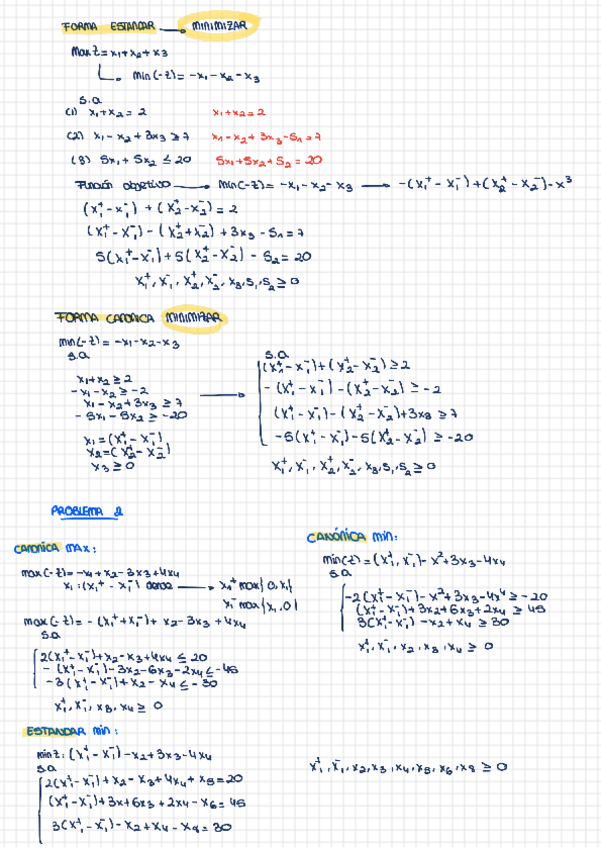 FORMA ESTANDAR → MINIMIZAR
Max z = x₁+x₂+x₃
↳ min(-z) = -x₁-x₂-x₃
s.a
(1) x₁+x₂ = 2 x₁+x₂ = 2
(2) x₁-x₂+3x₃ ≥ 7 x₁-x₂+3x₃-S₁ = 7
(3) 5x₁+5x₂ ≤ 20 5x₁+5x₂+S₂ = 20
Función objetivo → Min(-z) = -x₁-x₂-x₃ → -(x₁⁺-x₁⁻)+(x₂⁺-x₂⁻)-x³
(x₁⁺-x₁⁻)+(x₂⁺-x₂⁻) = 2
(x₁⁺-x₁⁻)-(x₂⁺+x₂⁻)+3x₃-S₁ = 7
5(x₁⁺-x₁⁻)+5(x₂⁺-x₂⁻)-S₂ = 20
x₁⁺, x₁⁻, x₂⁺, x₂⁻, x₃, S₁, S₂ ≥ 0
FORMA CANONICA MINIMIZAR
min(-z) = -x₁-x₂-x₃
s.a
x₁+x₂ ≥ 2
-x₁-x₂ ≥ -2
x₁-x₂+3x₃ ≥ 7
-5x₁-5x₂ ≥ -20
x₁ = (x₁⁺-x₁⁻)
x₂ = (x₂⁺-x₂⁻)
x₃ ≥ 0
→
s.a
(x₁⁺-x₁⁻)+(x₂⁺-x₂⁻) ≥ 2
-(x₁⁺-x₁⁻)-(x₂⁺-x₂⁻) ≥ -2
(x₁⁺-x₁⁻)-(x₂⁺-x₂⁻)+3x₃ ≥ 7
-5(x₁⁺-x₁⁻)-5(x₂⁺-x₂⁻) ≥ -20
x₁⁺, x₁⁻, x₂⁺, x₂⁻, x₃, S₁, S₂ ≥ 0
PROBLEMA 2
CANONICA MAX:
max(-z) = -x₁+x₂-3x₃+4x₄
x₁: (x₁⁺-x₁⁻) donde → x₁⁺ max{0, x₁}
x₁⁻ max{x₁, 0}
max(-z) = -(x₁⁺+x₁⁻)+x₂-3x₃+4x₄
s.a
2(x₁⁺-x₁⁻)+x₂-x₃+4x₄ ≤ 20
-(x₁⁺-x₁⁻)-3x₂-6x₃-2x₄ ≤ -45
-3(x₁⁺-x₁⁻)+x₂-x₄ ≤ -30
x₁⁺, x₁⁻, x₃, x₄ ≥ 0
CANÓNICA min:
min(-z) = (x₁⁺, x₁⁻)-x²+3x₃-4x₄
s.a
-2(x₁⁺-x₁⁻)-x²+3x₃-4x⁴ ≥ -20
(x₁⁺-x₁⁻)+3x₂+6x₃+2x₄ ≥ 45
3(x₁⁺-x₁⁻)-x₂+x₄ ≥ 30
x₁⁺, x₁⁻, x₂, x₃, x₄ ≥ 0
ESTANDAR min:
min z: (x₁⁺-x₁⁻)-x₂+3x₃-4x₄
s.a
2(x₁⁺-x₁⁻)+x₂-x₃+4x₄+x₅ = 20
(x₁⁺-x₁⁻)+3x+6x₃+2x₄-x₆ = 45
3(x₁⁺-x₁⁻)-x₂+x₄-x₈ = 30
x₁⁺, x₁⁻, x₂, x₃, x₄, x₅, x₆, x₈ ≥ 0